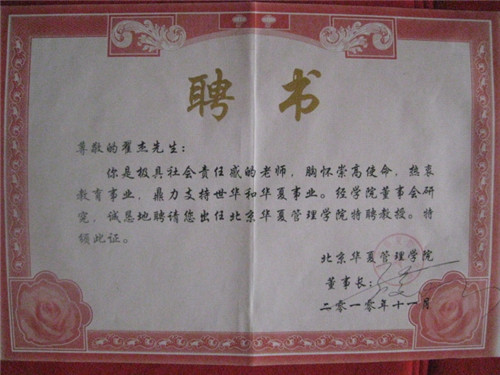 聘书
尊敬的翟杰先生：
你是极具社会责任感的老师，胸怀崇高使命，热衷
教育事业，鼎力支持世华和华夏事业。经学院董事会研
究，诚恳地聘请您出任北京华夏管理学院特聘教授。特
颁此证。
北京华夏管理学院
董事长：
二零一零年十一月